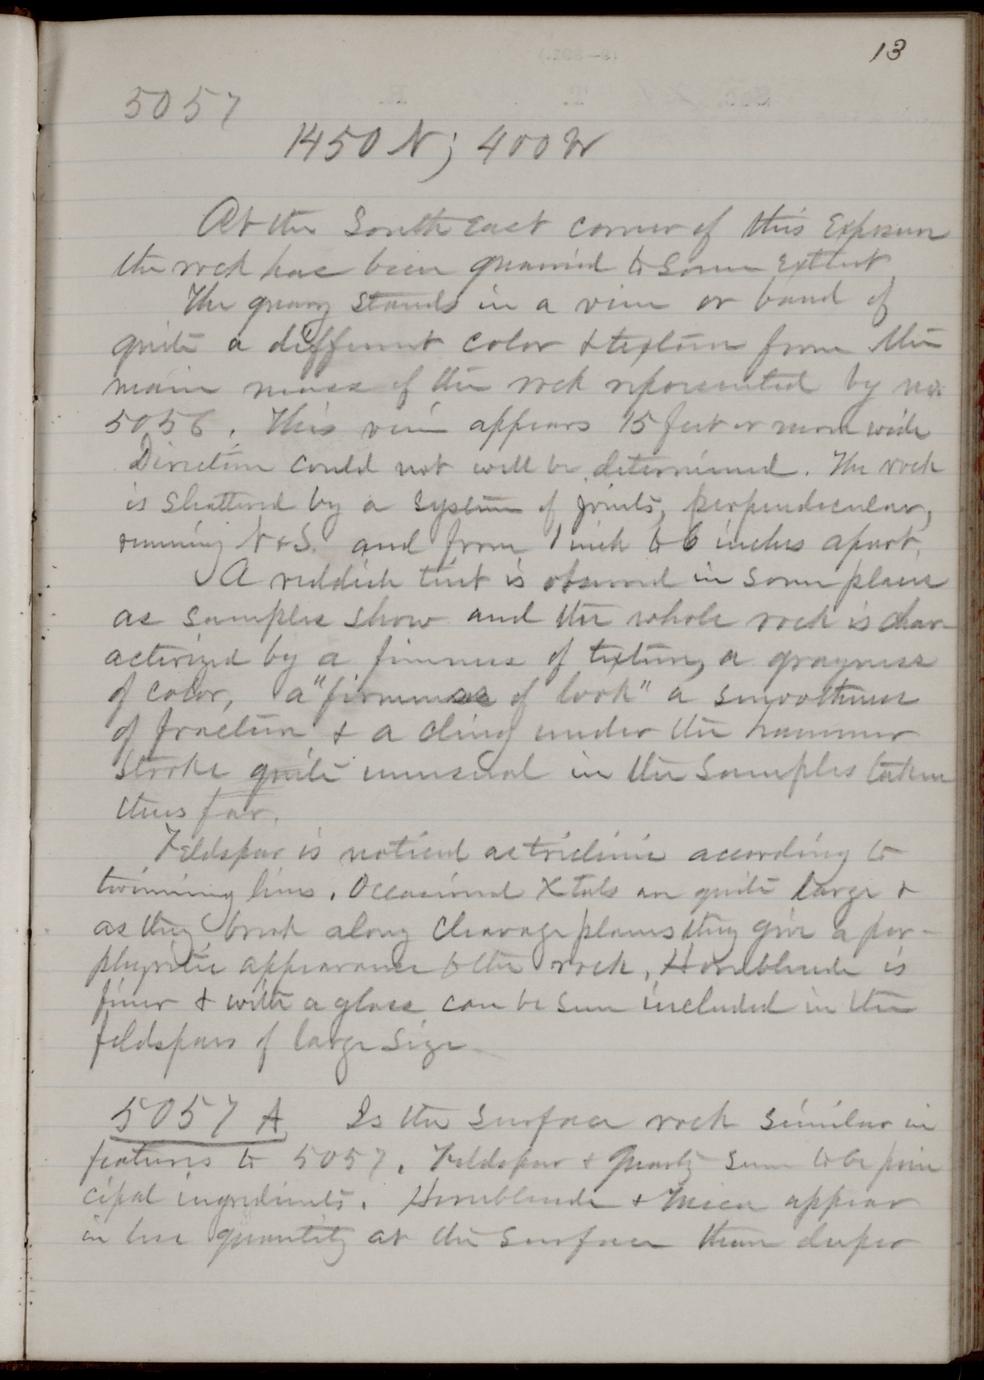 13
5057
1450 N; 400 W
At the South East corner of this Exposure
the rock has been quarried to some extent
The quarry stands in a vein or band of
quite a different color & texture from the
main mass of the rock represented by no
5056. This vein appears 15 feet or more wide
Direction could not well be determined. The rock
is shattered by a system of joints, perpendicular,
running N & S. and from 1 inch to 6 inches apart.
A reddish tint is observed in some places
as samples show and the whole rock is char-
acterized by a fineness of texture, a grayness
of color, a "firmness of look" a smoothness
of fracture & a cling under the hammer
stroke quite unusual in the samples taken
thus far.
Feldspar is noticed as triclinic according to
twinning lines. Occasional Xtals are quite large &
as they break along cleavage planes they give a por-
phyritic appearance to the rock. Hornblende is
finer & with a glass can be seen included in the
feldspars of large size
5057 A Is the surface rock similar in
features to 5057. Feldspar & Quartz seem to be prin
cipal ingredients. Hornblende & Mica appear
in less quantity at the surface than deeper